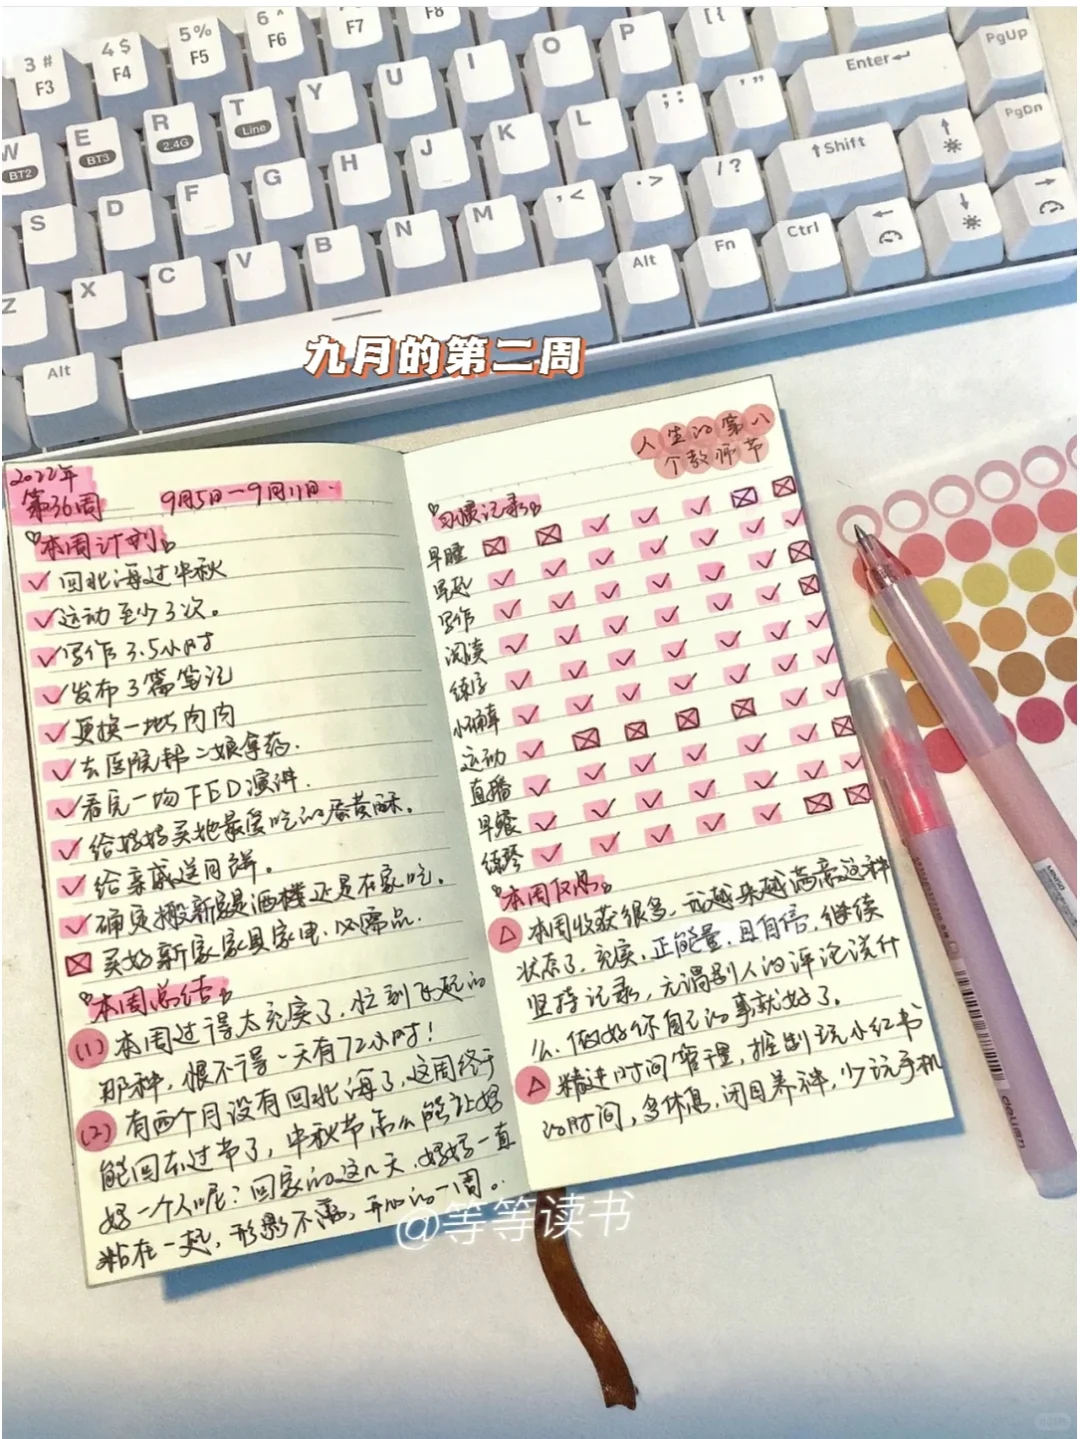 3 # F3
4 $ F4
5 % F5
6 ^ F6
F7
F8
W BT2
E BT3
R 2.4G
T Line
Y
U
I
O
P
[ {
Enter
PgUp
S
D
F
G
H
J
K
L
; :
' "
Shift
PgDn
Z
X
C
V
B
N
M
, <
. >
/ ?
Alt
Alt
Fn
Ctrl
九月的第二周
2022年
第36周 9月5日一9月11日.
本周计划
回北海过中秋
运动至少3次。
写作3.5小时
发布3篇笔记
更换一批肉肉
去医院帮二娘拿药.
看完一场TED演讲.
给好好买她最爱吃的蛋黄酥.
给亲戚送月饼.
确定搬新家是酒楼还是在家吃.
买好新家家具家电、必需品.
本周总结
(1) 本周过得太充实了,忙到飞起的
那种,恨不得一天有72小时!
(2) 有两个月没有回北海了,这周终于
能回去过节了,中秋节怎么能让好
好一个人呢?回家的这几天,好好一直
粘在一起,形影不离,开心的一周。
人生的第八
个教师节
习惯记录
早睡
早起
写作
阅读
练字
小确幸
运动
直播
早餐
练琴
本周反思
本周收获很多,越来越满意这种
状态了,充实,正能量,且自信,继续
坚持记录,无谓别人的评论说什
么,做好你自己的事就好了。
精进时间管理,控制玩小红书
的时间,多休息,闭目养神,少玩手机
@等等读书
deli
小红书